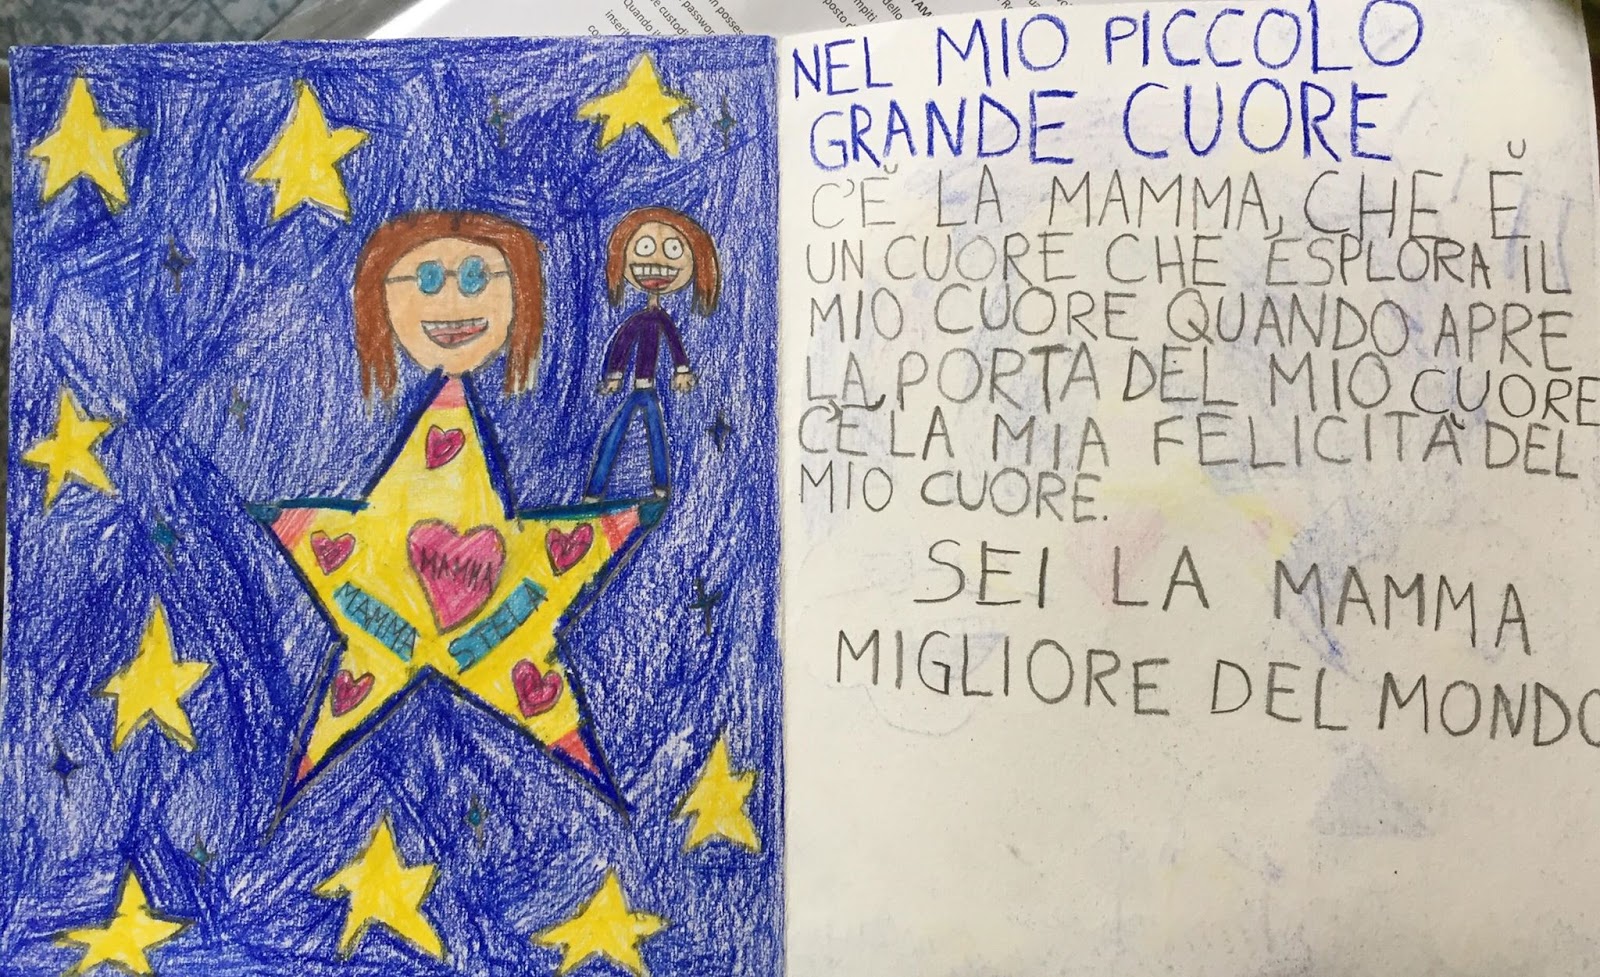 MAMMA
MAMMA
STELA
NEL MIO PICCOLO
GRANDE CUORE
C'È LA MAMMA, CHE È
UN CUORE CHE ESPLORA IL
MIO CUORE QUANDO APRE
LA PORTA DEL MIO CUORE
C'È LA MIA FELICITÀ DEL
MIO CUORE.
SEI LA MAMMA
MIGLIORE DEL MONDO